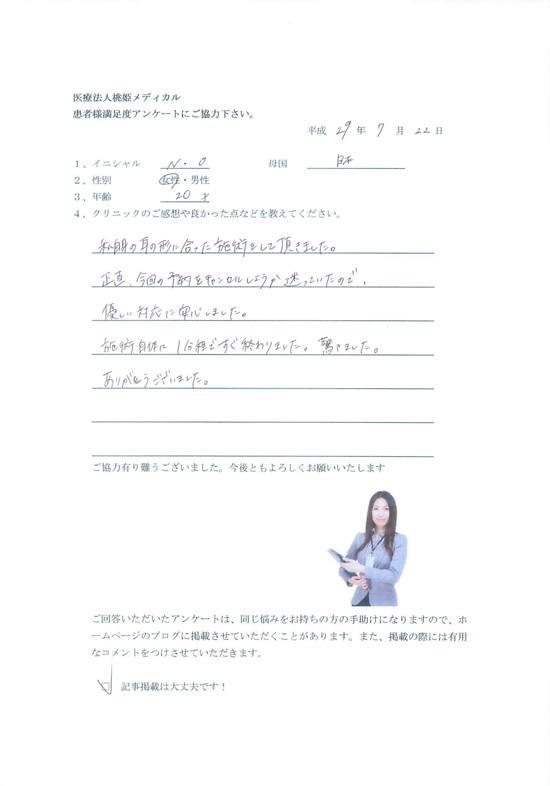 医療法人桃姫メディカル
患者様満足度アンケートにご協力下さい。
平成 29 年 7 月 22 日
1、イニシャル N・O 母国 日本
2、性別 女性・男性
3、年齢 20 才
4、クリニックのご感想や良かった点などを教えてください。
私自身の耳の形に合った施術をして頂きました。
正直、今回の予約をキャンセルしようか迷っていたので、
優しい対応に安心しました。
施術自体は1分程ですぐ終わりました。驚きました。
ありがとうございました。
ご協力有り難うございました。今後ともよろしくお願いいたします
ご回答いただいたアンケートは、同じ悩みをお持ちの方の手助けになりますので、ホ
ームページのブログに掲載させていただくことがあります。また、掲載の際には有用
なコメントをつけさせていただきます。
□ 記事掲載は大丈夫です！